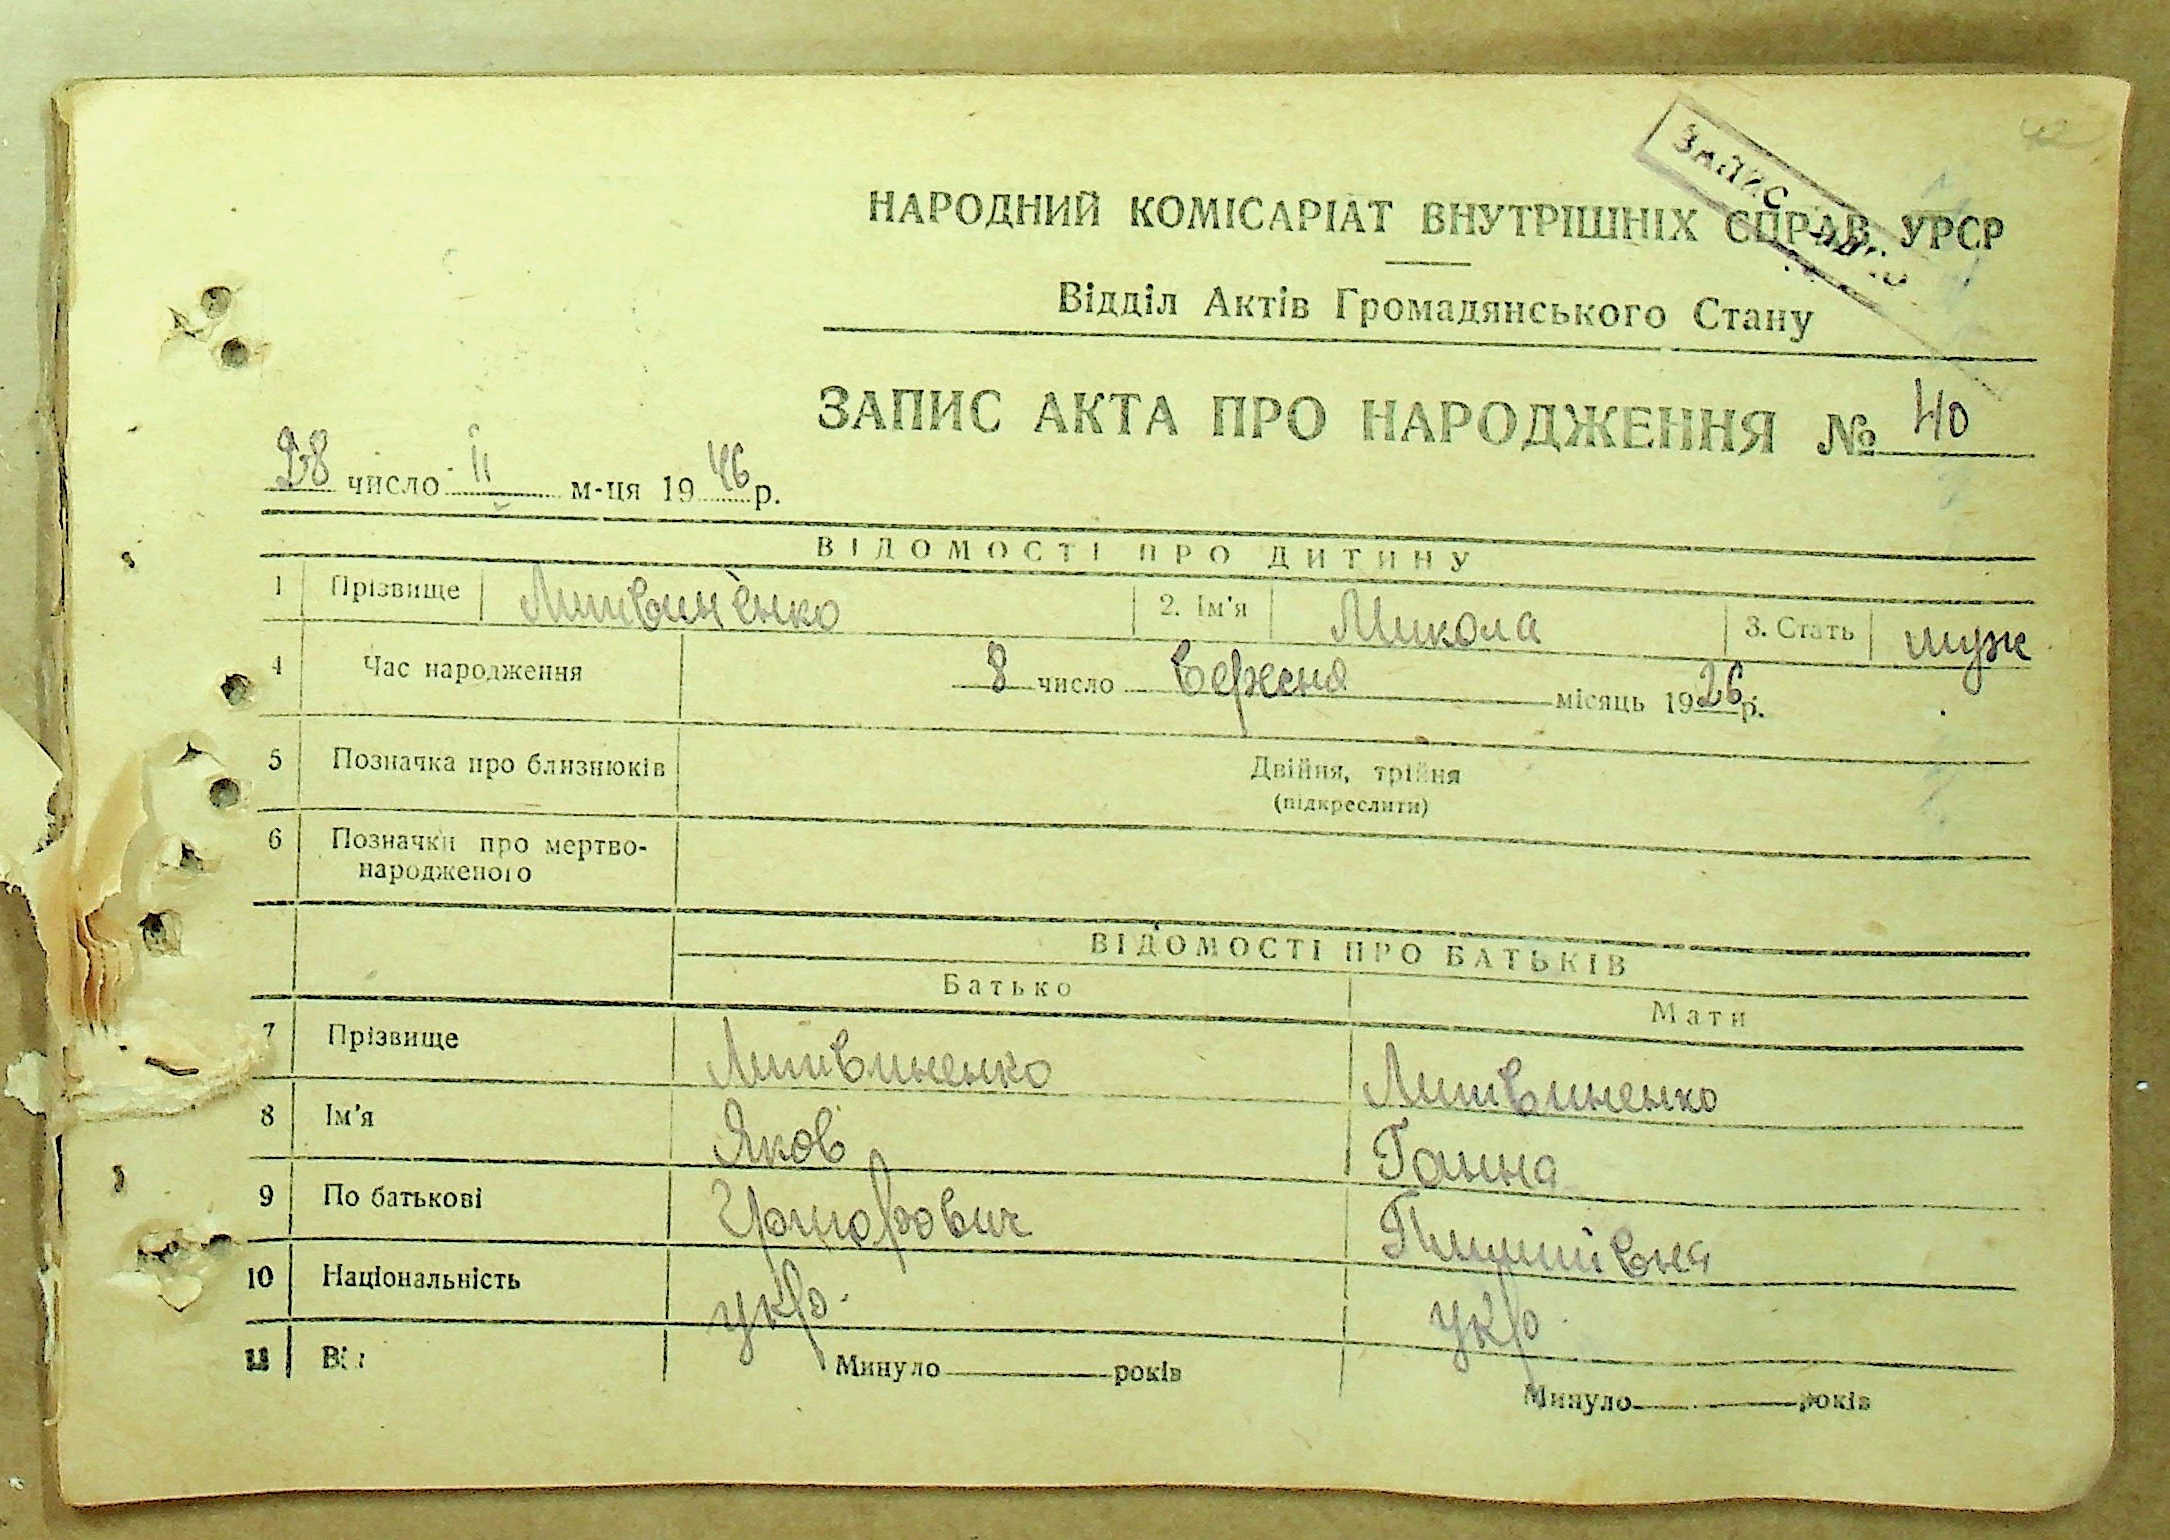 42
ЗАПИС
НАРОДНИЙ КОМІСАРІАТ ВНУТРІШНІХ СПРАВ УРСР
Відділ Актів Громадянського Стану
ЗАПИС АКТА ПРО НАРОДЖЕННЯ № 40
28 число II м-ця 1946 р.
ВІДОМОСТІ ПРО ДИТИНУ
1 Прізвище Литвиненко 2. Ім'я Микола 3. Стать муж
4 Час народження 8 число вересня місяць 1926 р.
5 Позначка про близнюків Двійня, трійня
(підкреслити)
6 Позначки про мертво-
народженого
ВІДОМОСТІ ПРО БАТЬКІВ
Батько Мати
7 Прізвище Литвиненко Литвиненко
8 Ім'я Яков Ганна
9 По батькові Григорович Пилипівна
10 Національність укр. укр.
11 Вік Минуло років Минуло років